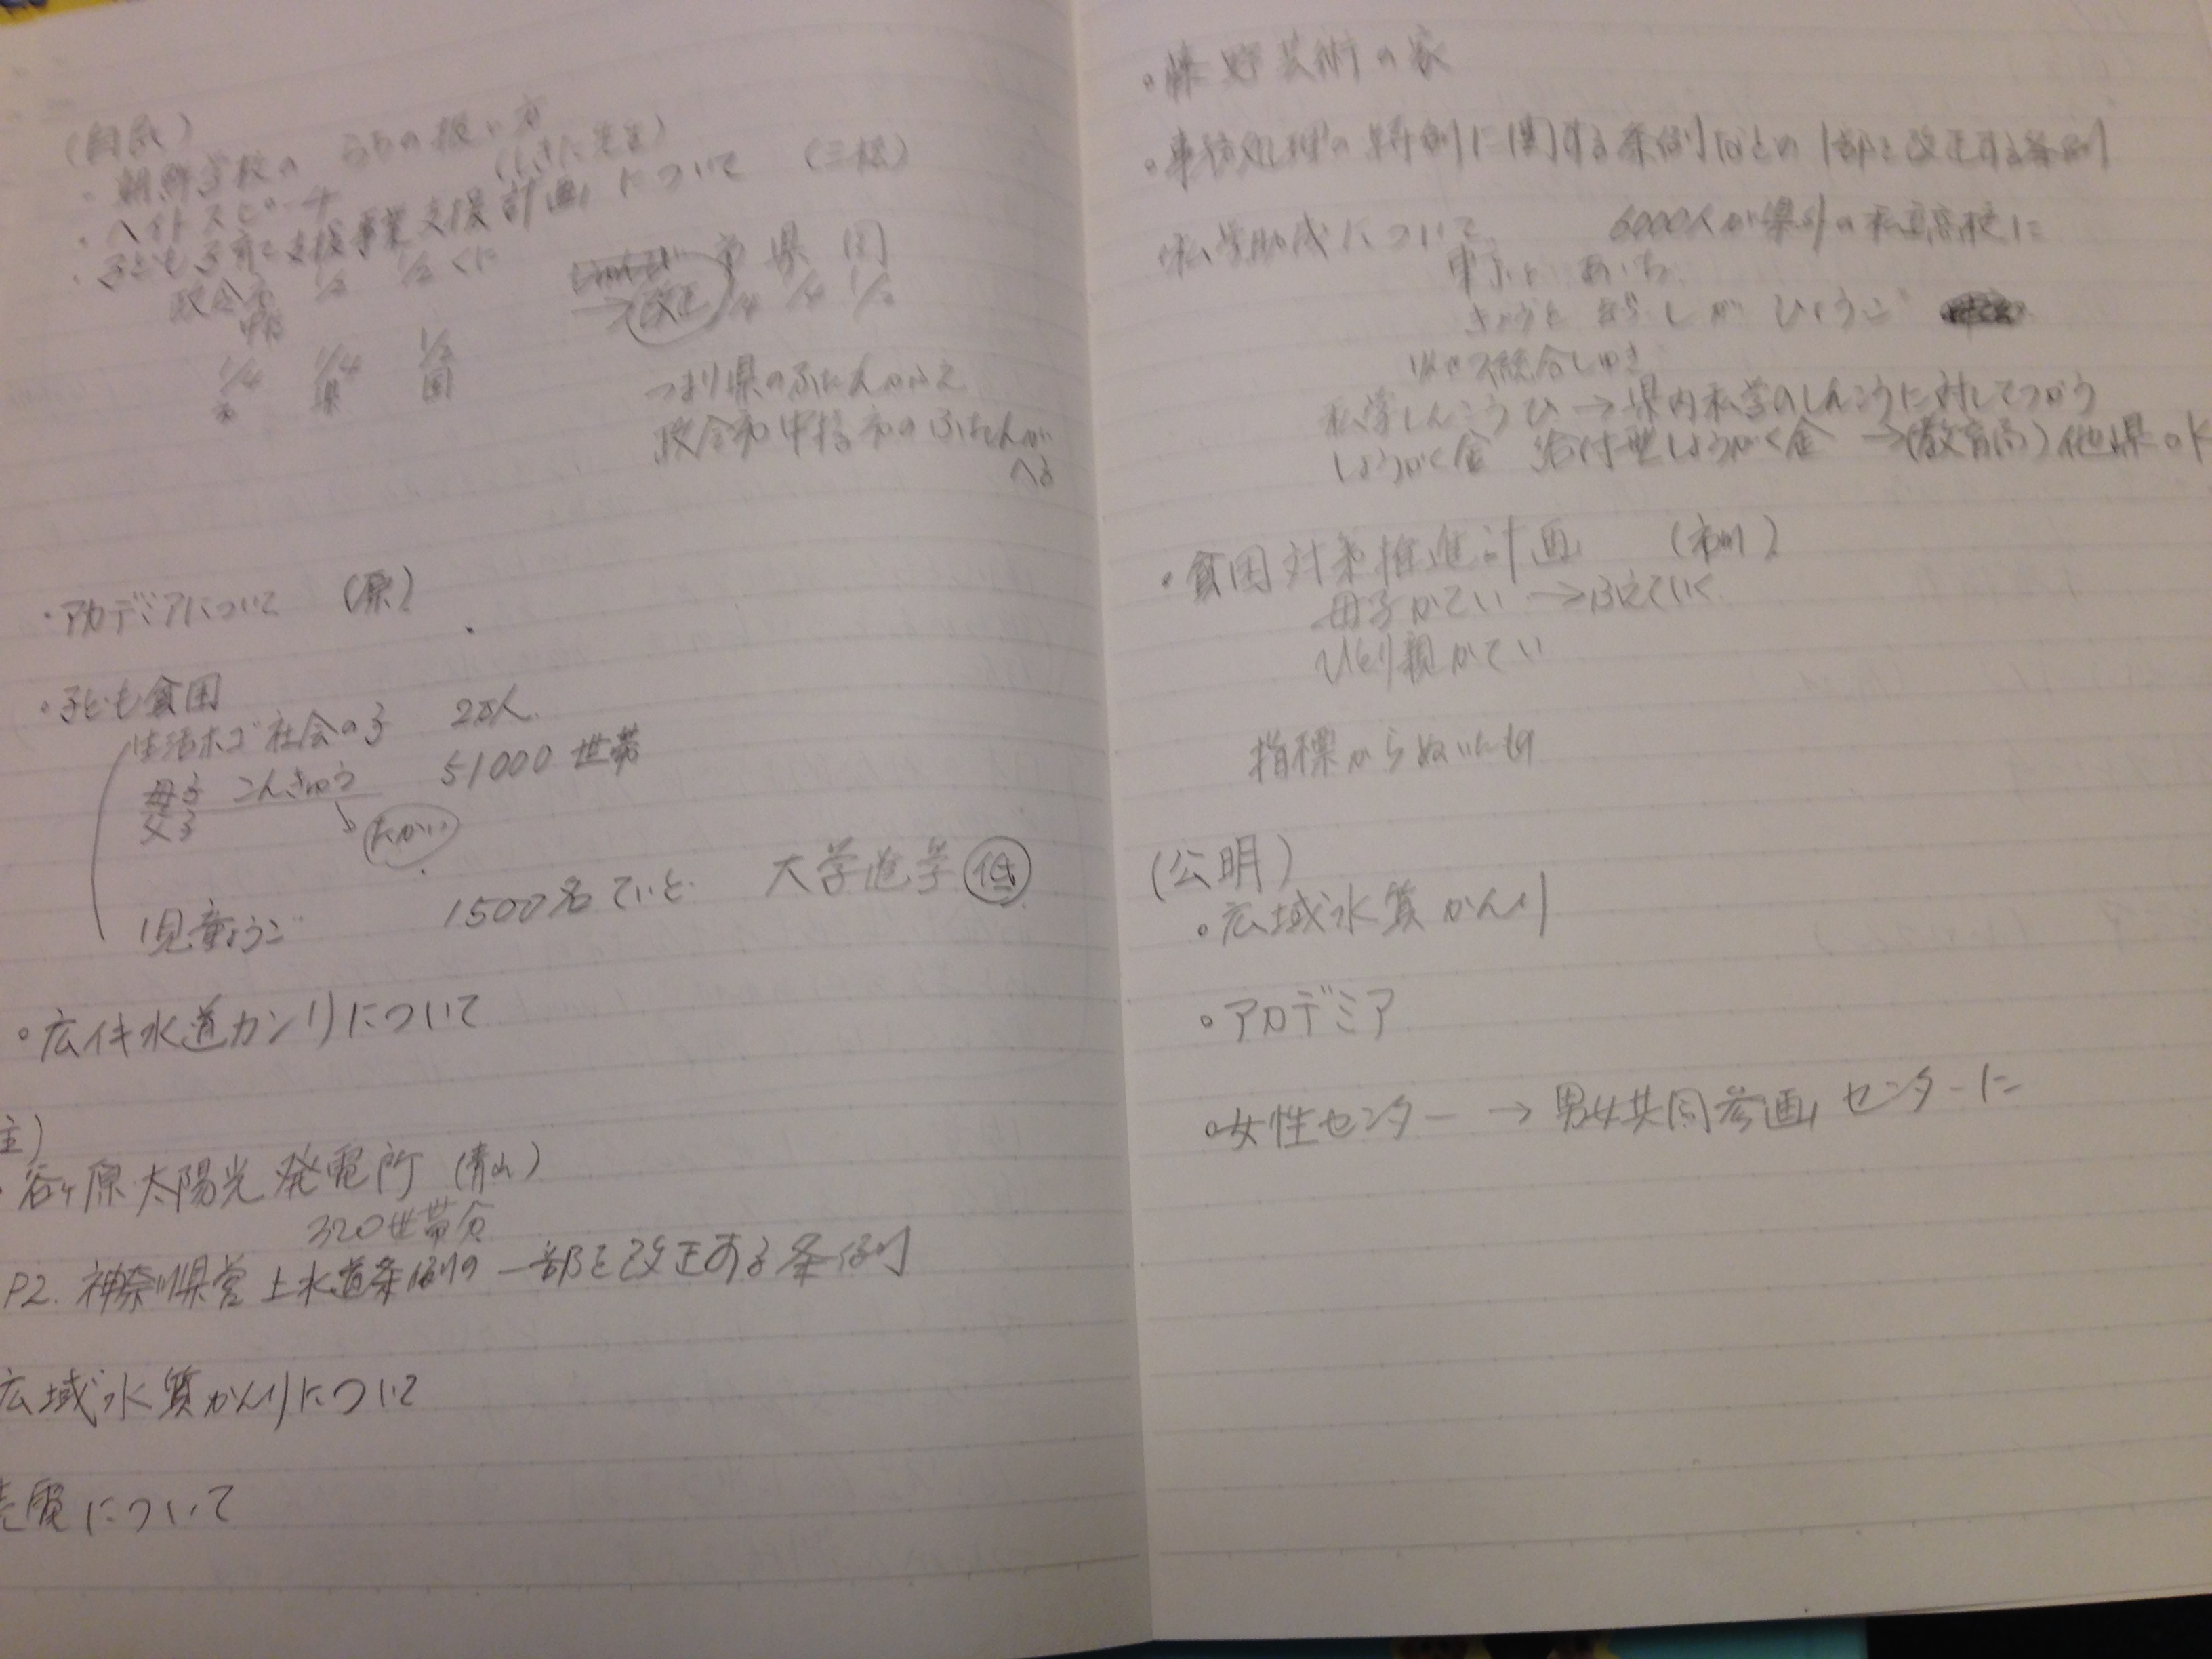 (自民)
・朝鮮学校の らちの扱い方
・ヘイトスピーチ (しきだ先生)
・子ども子育て支援事業支援計画について (三松)
政令市 1/2 1/2 くに
中核
1/4 1/4 1/2
市 県 国
市 県 国
→改正 1/4 1/4 1/2
つまり県のふたんがふえ
政令市中核市のふたんが
へる
・アカデミアについて (原)
・子ども貧困
生活ホゴ社会の子 2万人
母子 こんきゅう 51000世帯
父子
たかい
児童ようご 1500名ていど 大学進学 低
・広イキ水道カンリについて
主)
・谷ヶ原太陽光発電所 (青山)
320世帯分
P2. 神奈川県営上水道条例の一部を改正する条例
広域水質かんりについて
売電について
・藤野芸術の家
・事務処理の特例に関する条例などの1部を改正する条例
私学助成について 6000人が県外の私立高校に
東京と あいち
きょうと なら しが ひょうご
私学しんこうひ→県内私学のしんこうに対してつかう
しょうがく金 給付型しょうがく金→(教育局)他県OK
・貧困対策推進計画 (市川)
母子かてい→ふえていく
ひとり親かてい
指標からぬいたもの
(公明)
・広域水質かんり
・アカデミア
・女性センター→男女共同参画センターに